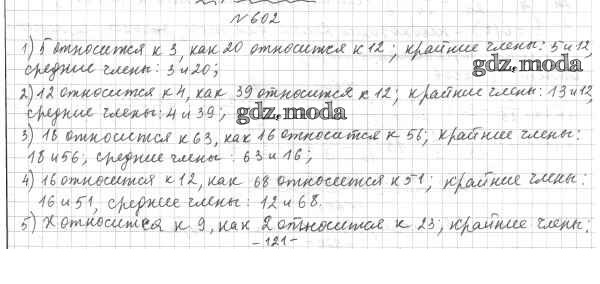 №602
1) 5 относится к 3, как 20 относится к 12; крайние члены: 5 и 12,
средние члены: 3 и 20;
gdz.moda
2) 12 относится к 4, как 39 относится к 12; крайние члены: 13 и 12,
средние члены: 4 и 39;
gdz.moda
3) 18 относится к 63, как 16 относится к 56; крайние члены:
18 и 56, средние члены: 63 и 16;
4) 16 относится к 12, как 68 относится к 51; крайние члены:
16 и 51, средние члены: 12 и 68.
5) x относится к 9, как 2 относится к 23; крайние члены:
-121-